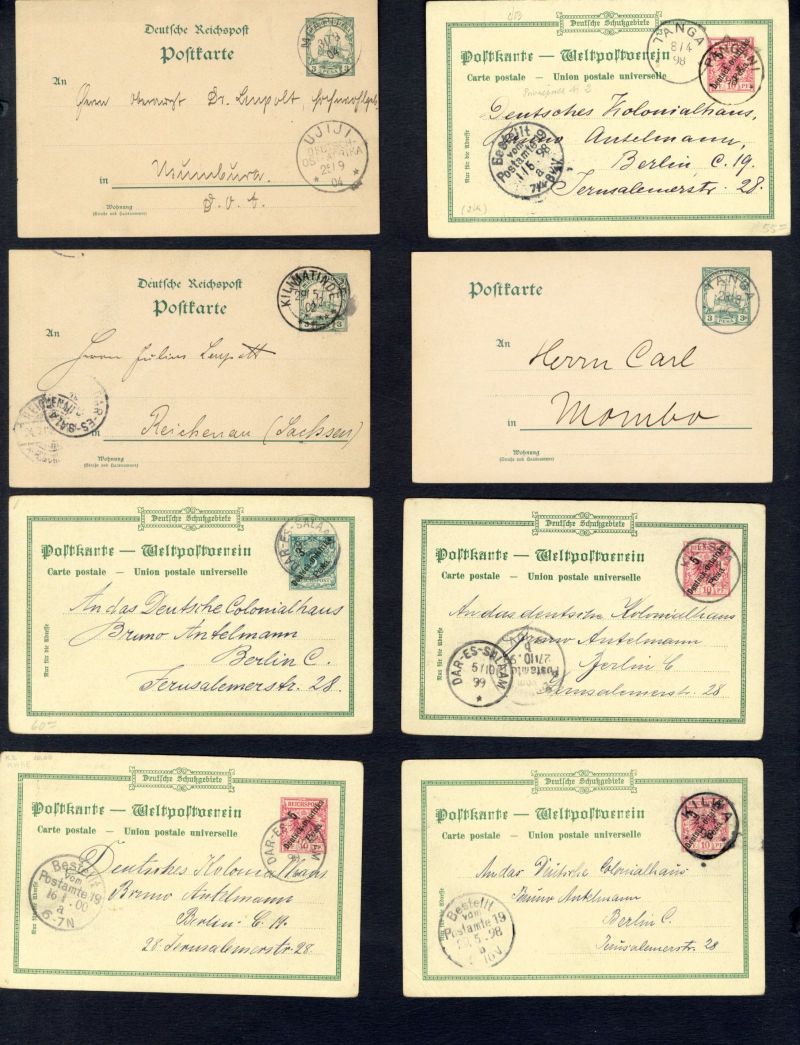 Deutsche Reichspost
Postkarte
An
Herrn Oberarzt Dr. Leupolt,
UJIJI
DEUTSCH-
OSTAFRIKA
25/9
04
in
D. O. A.
Wohnung
(Straße und Hausnummer)
3 PESA 3
d/3
TANGA
8/4
98
PANGANI
Deutsche Schutzgebiete
Postkarte — Weltpostverein
Carte postale — Union postale universelle
Nur für die Adresse
Deutsches Kolonialhaus,
Bruno Antelmann,
Berlin, C. 19.
Jerusalemerstr. 28.
Bestellt
vom
Postamte 19
1/5.98
a
7¼-8¼V
55=
Deutsche Reichspost
Postkarte
KILIMATINDE
An
Herrn Julius Leupolt
DAR-ES-SALAAM
REICHENAU
in
Reichenau (Sachsen)
Wohnung
(Straße und Hausnummer)
Postkarte
TANGA
3 PESA 3
An
Herrn Carl
in
Mombo
Wohnung
(Straße und Hausnummer)
Deutsche Schutzgebiete
Postkarte — Weltpostverein
Carte postale — Union postale universelle
DAR-ES-SALAAM
Nur für die Adresse
An das Deutsche Colonialhaus
Bruno Antelmann
Berlin C.
Jerusalemerstr. 28.
60=
Deutsche Schutzgebiete
Postkarte — Weltpostverein
Carte postale — Union postale universelle
5
10 PF
Nur für die Adresse
An das deutsche Kolonialhaus
Bruno Antelmann
Berlin C
Jerusalemerstr. 28
DAR-ES-SALAAM
5/10
99
27/10.99
Deutsche Schutzgebiete
Postkarte — Weltpostverein
Carte postale — Union postale universelle
REICHSPOST
DAR-ES-SALAAM
Nur für die Adresse
Deutsches Kolonialhaus
Bruno Antelmann
Berlin C. 19.
28. Jerusalemerstr. 28.
Bestellt
vom
Postamte 19
16/1.00
a
6-7N
Deutsche Schutzgebiete
Postkarte — Weltpostverein
Carte postale — Union postale universelle
KILWA
10 PF
Nur für die Adresse
An das Deutsche Colonialhaus
Bruno Antelmann
Berlin C.
Jerusalemerstr. 28
Bestellt
vom
Postamte 19
5.98